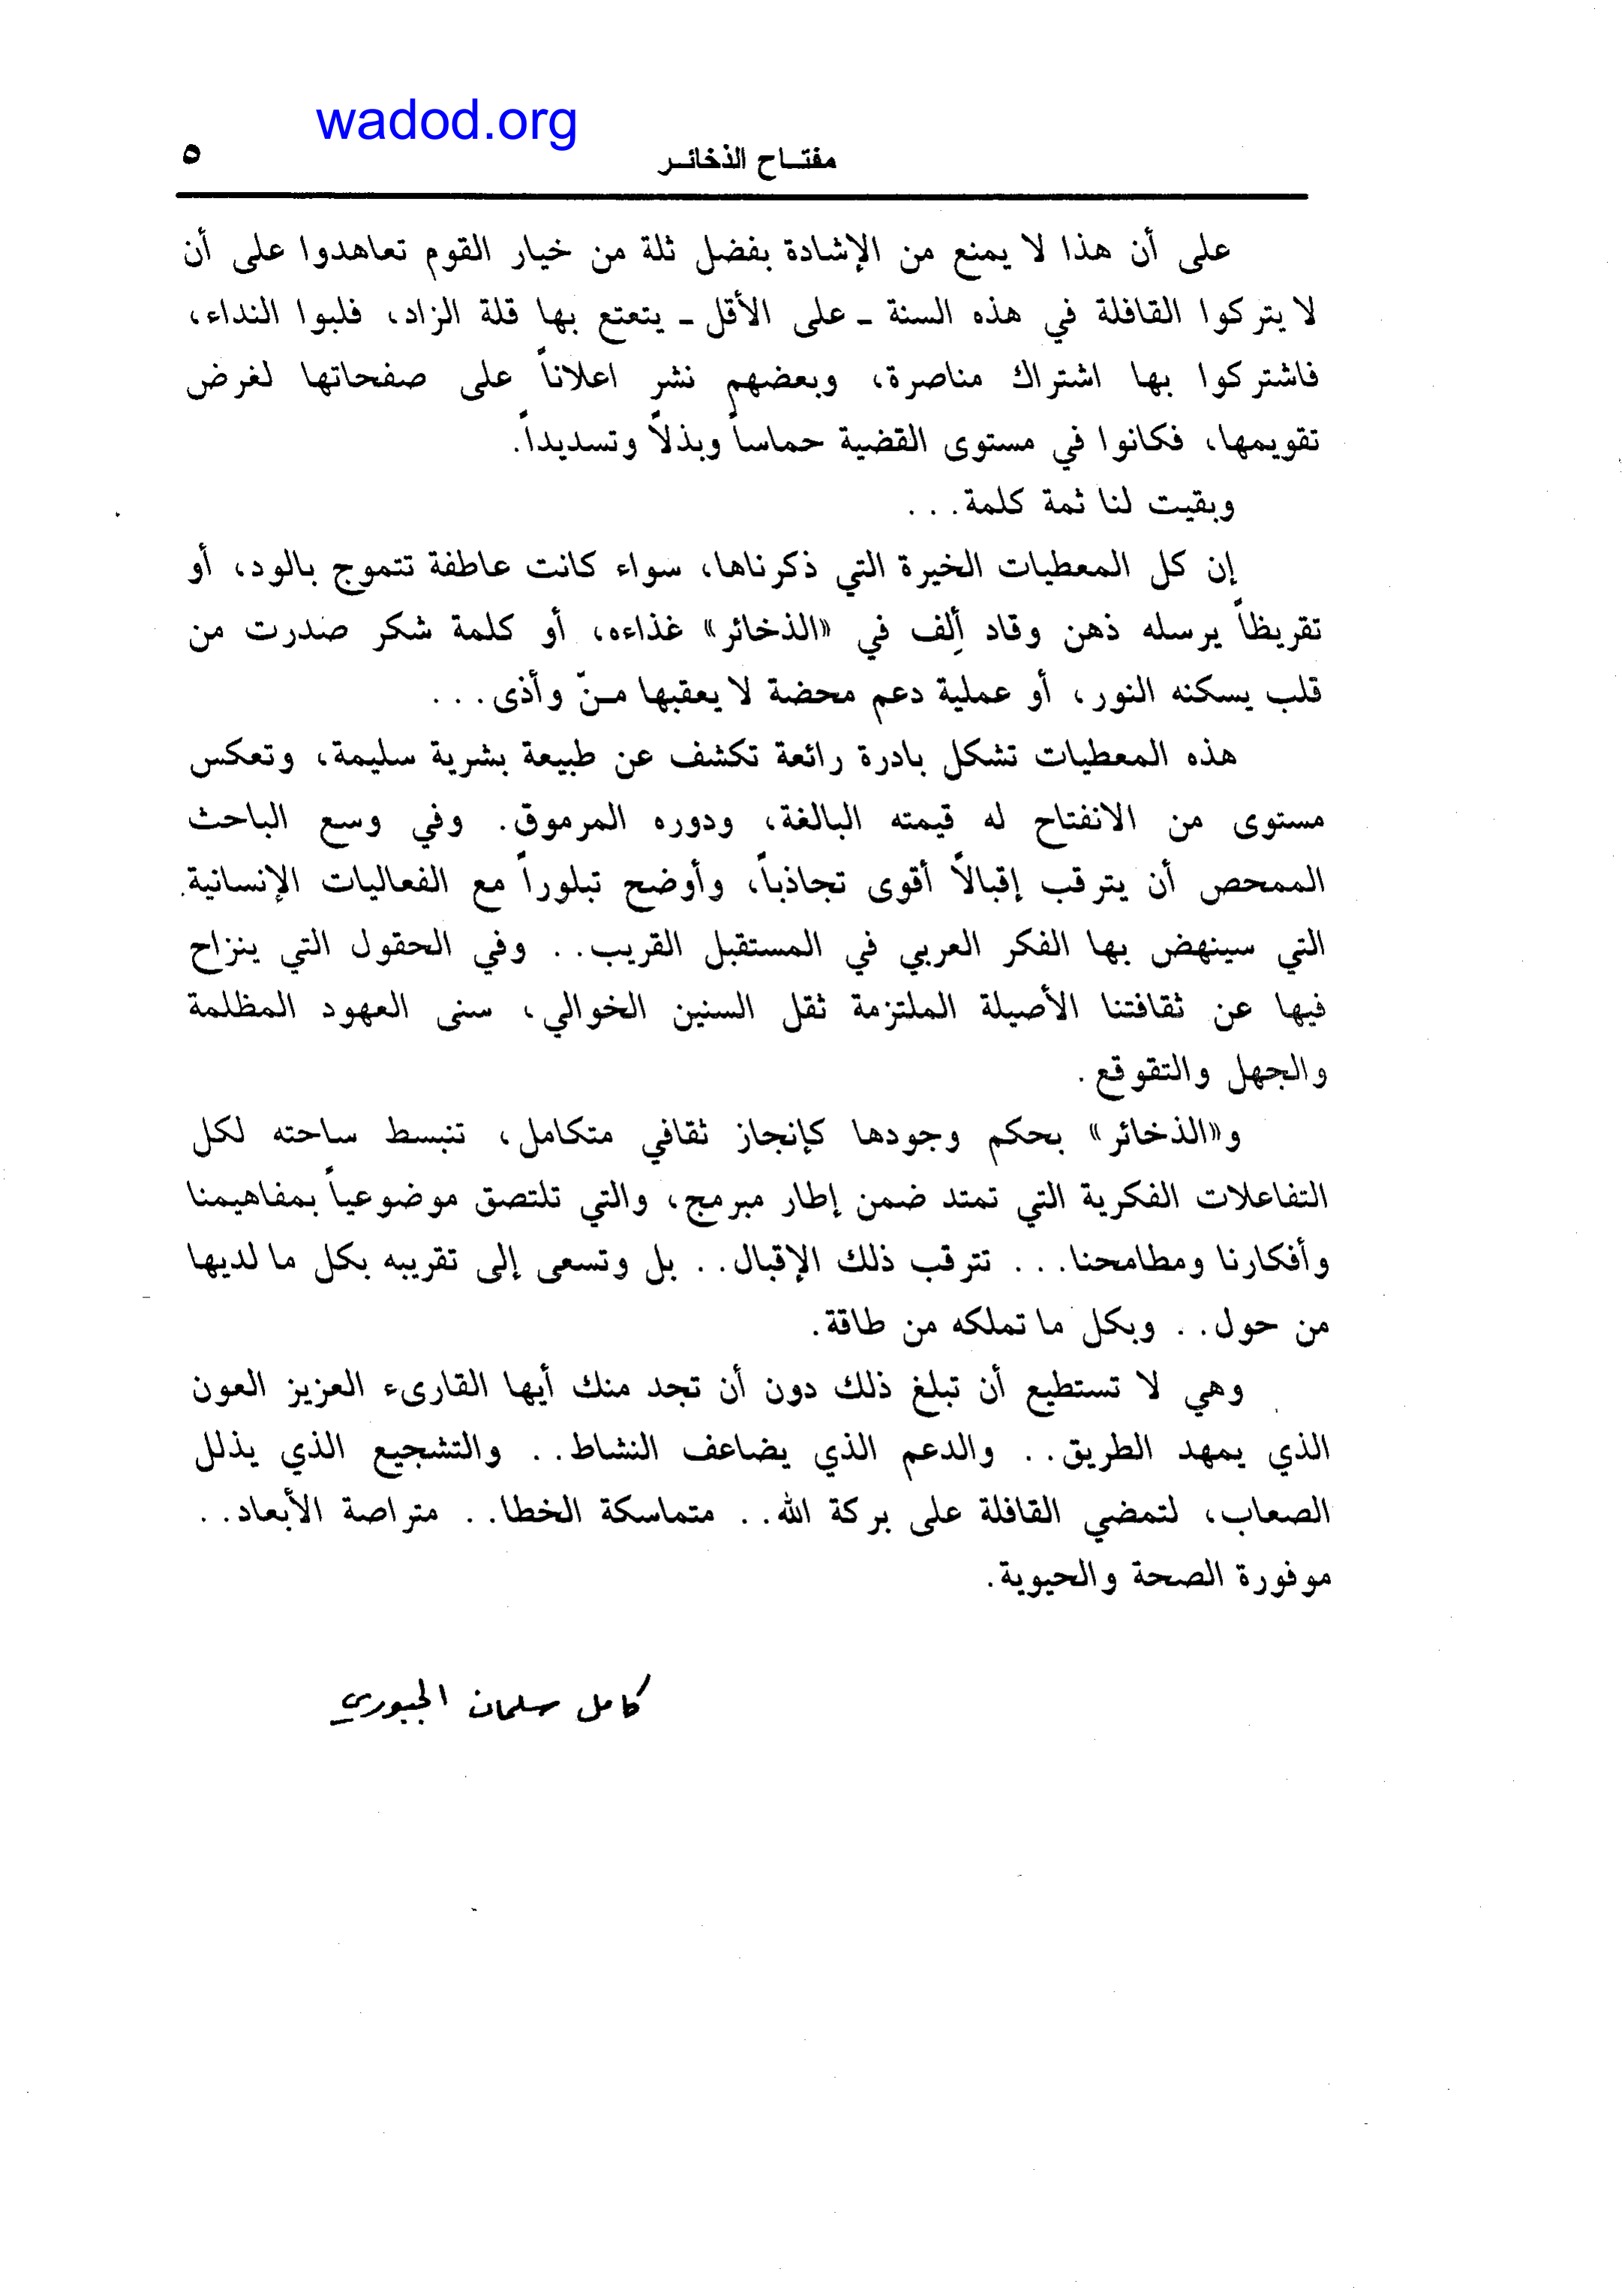 wadod.org
مفتاح الذخائر ٥
على أن هذا لا يمنع من الإشادة بفضل ثلة من خيار القوم تعاهدوا على أن
لا يتركوا القافلة في هذه السنة ـ على الأقل ـ يتعتع بها قلة الزاد، فلبوا النداء،
فاشتركوا بها اشتراك مناصرة، وبعضهم نشر اعلاناً على صفحاتها لغرض
تقويمها، فكانوا في مستوى القضية حماساً وبذلاً وتسديداً.
وبقيت لنا ثمة كلمة...
إن كل المعطيات الخيرة التي ذكرناها، سواء كانت عاطفة تتموج بالود، أو
تقريظاً يرسله ذهن وقاد ألِف في «الذخائر» غذاءه، أو كلمة شكر صدرت من
قلب يسكنه النور، أو عملية دعم محضة لا يعقبها منّ وأذى...
هذه المعطيات تشكل بادرة رائعة تكشف عن طبيعة بشرية سليمة، وتعكس
مستوى من الانفتاح له قيمته البالغة، ودوره المرموق. وفي وسع الباحث
الممحص أن يترقب إقبالاً أقوى تجاذباً، وأوضح تبلوراً مع الفعاليات الإنسانية
التي سينهض بها الفكر العربي في المستقبل القريب.. وفي الحقول التي ينزاح
فيها عن ثقافتنا الأصيلة الملتزمة ثقل السنين الخوالي، سنى العهود المظلمة
والجهل والتقوقع.
و«الذخائر» بحكم وجودها كإنجاز ثقافي متكامل، تنبسط ساحته لكل
التفاعلات الفكرية التي تمتد ضمن إطار مبرمج، والتي تلتصق موضوعياً بمفاهيمنا
وأفكارنا ومطامحنا... تترقب ذلك الإقبال.. بل وتسعى إلى تقريبه بكل ما لديها
من حول.. وبكل ما تملكه من طاقة.
وهي لا تستطيع أن تبلغ ذلك دون أن تجد منك أيها القارىء العزيز العون
الذي يمهد الطريق.. والدعم الذي يضاعف النشاط.. والتشجيع الذي يذلل
الصعاب، لتمضي القافلة على بركة الله.. متماسكة الخطا.. متراصة الأبعاد..
موفورة الصحة والحيوية.
كامل سلمان الجبوري